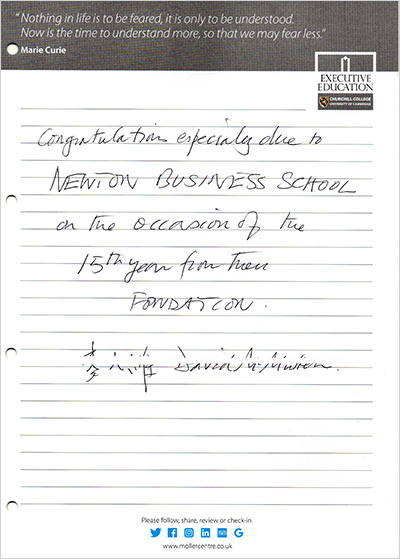 “Nothing in life is to be feared, it is only to be understood.
Now is the time to understand more, so that we may fear less.”
Marie Curie
EXECUTIVE
EDUCATION
CHURCHILL COLLEGE
UNIVERSITY OF CAMBRIDGE
Congratulations especialy due to
NEWTON BUSINESS SCHOOL
on the occasion of the
15th year from their
FONDATION.
David
Please follow, share, review or check-in
www.mollercentre.co.uk